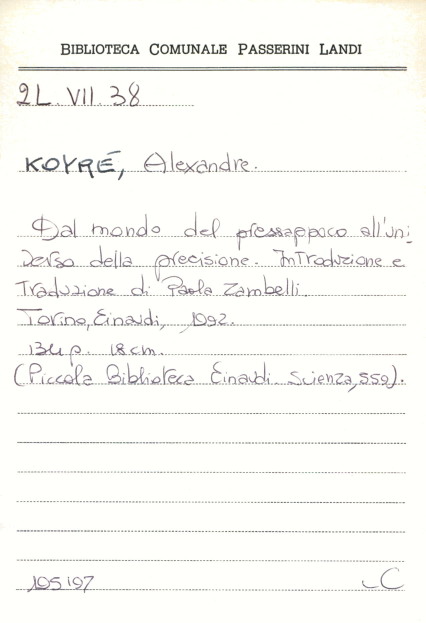 BIBLIOTECA COMUNALE PASSERINI LANDI
2L.VII.38
KOYRÉ, Alexandre.
Dal mondo del pressappoco all'uni
verso della precisione. Introduzione e
traduzione di Paola Zambelli.
Torino, Einaudi, 1992.
134 p. 18 cm.
(Piccola Biblioteca Einaudi. Scienza, 559).
105197
C